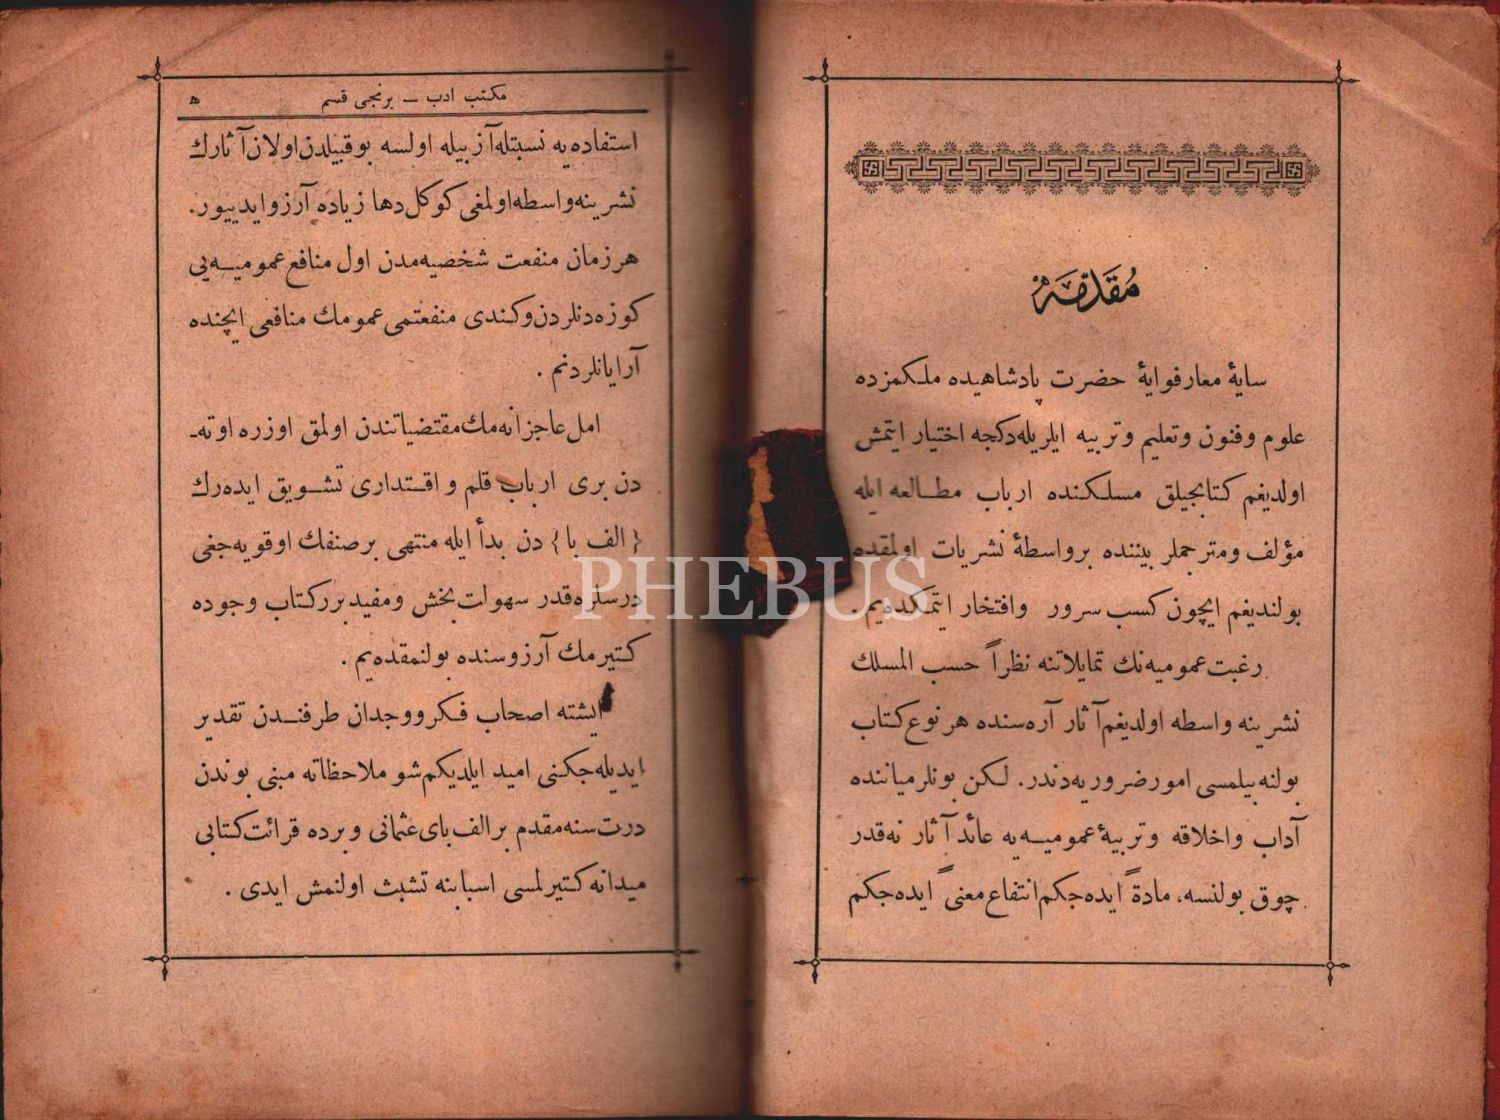 مقدمه
سایهٔ معارفوایهٔ حضرت پادشاهیده ملکمزده
علوم وفنون وتعلیم وتربیه ایلریله‌دکجه اختیار ایتمش
اولدیغم کتابجیلق مسلکنده ارباب مطالعه ایله
مؤلف ومترجملر بیننده برواسطهٔ نشریات اولمقده
بولندیغم ایچون کسب سرور وافتخار ایتمکده‌یم.
رغبت عمومیه‌نك تمایلاتنه نظراً حسب المسلك
نشرینه واسطه اولدیغم آثار آره‌سنده هر نوع کتاب
بولنه‌بیلمسی امور ضروریه‌دندر. لکن بونلر میاننده
آداب واخلاقه وتربیهٔ عمومیه‌یه عائد آثار نه‌قدر
چوق بولنسه، مادةً ایده‌جکم انتفاع معنیً ایده‌جکم
مکتب ادب — برنجی قسم ٥
استفاده‌یه نسبتله آز بیله اولسه بوقبیلدن اولان آثارك
نشرینه واسطه اولمغی کوکل دها زیاده آرزو ایدییور.
هر زمان منفعت شخصیه‌مدن اول منافع عمومیه‌یی
کوزه‌دنلردن وکندی منفعتمی عمومك منافعی ایچنده
آرایانلردنم.
امل عاجزانه‌مك مقتضیاتندن اولمق اوزره اوته‌ـ
دن بری ارباب قلم واقتداری تشویق ایده‌رك
{ الف با } دن بدأ ایله منتهی بر صنفك اوقویه‌جغی
درسلره قدر سهولت‌بخش ومفید برر کتاب وجوده
کتیرمك آرزوسنده بولنمقده‌یم.
ایشته اصحاب فکر ووجدان طرفندن تقدیر
ایدیله‌جکنی امید ایلدیکم شو ملاحظاته مبنی بوندن
درت سنه مقدم بر الف‌بای عثمانی وبرده قرائت کتابی
میدانه کتیرلمسی اسبابنه تشبث اولنمش ایدی.
PHEBUS